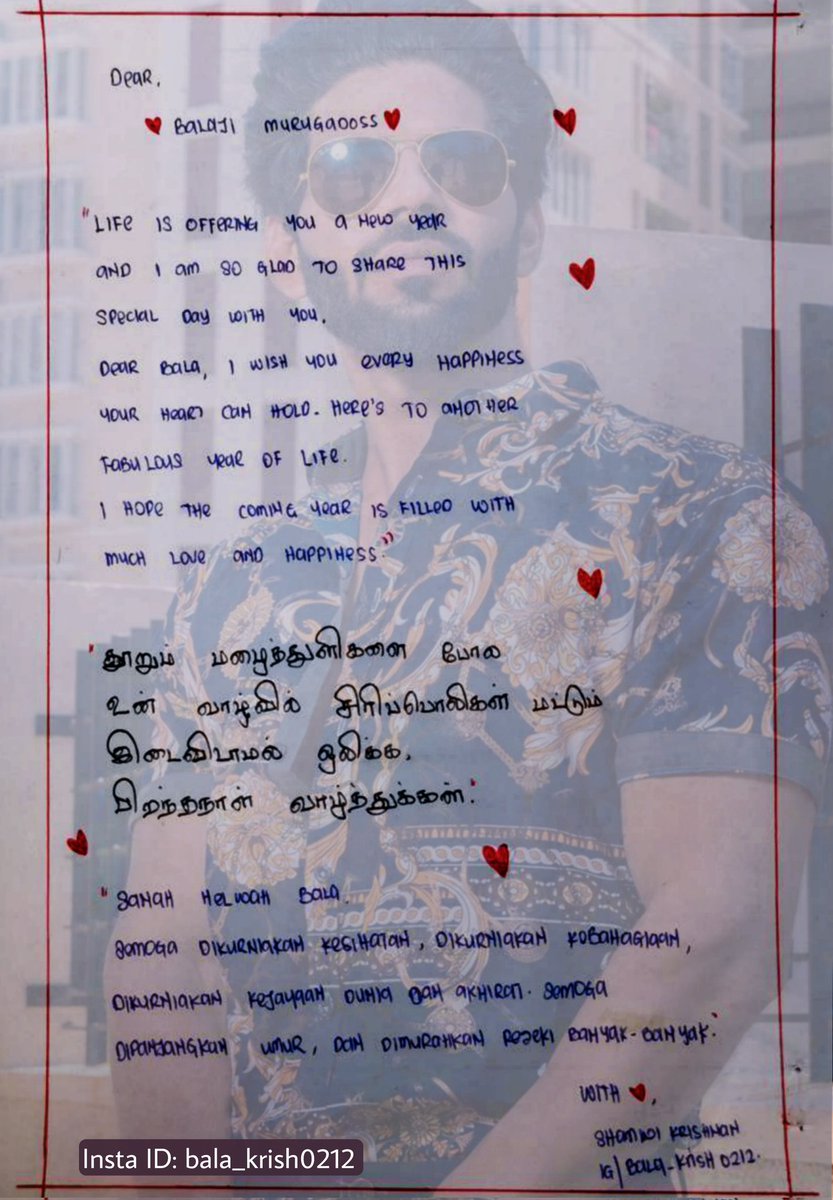 Dear,
BALAJI MURUGADOSS
"LIFE IS OFFERING YOU A NEW YEAR
AND I AM SO GLAD TO SHARE THIS
SPECIAL DAY WITH YOU.
DEAR BALA, I WISH YOU EVERY HAPPINESS
YOUR HEART CAN HOLD. HERE'S TO ANOTHER
FABULOUS YEAR OF LIFE.
I HOPE THE COMING YEAR IS FILLED WITH
MUCH LOVE AND HAPPINESS."
"தூறும் மழைத்துளிகளை போல
உன் வாழ்வில் சிரிப்பொலிகள் மட்டும்
இடைவிடாமல் ஒலிக்க,
பிறந்தநாள் வாழ்த்துக்கள்."
"SANAH HELWAH BALA.
SEMOGA DIKURNIAKAN KESIHATAN, DIKURNIAKAN KEBAHAGIAAN,
DIKURNIAKAN KEJAYAAN DUNIA DAN AKHIRAT. SEMOGA
DIPANJANGKAN UMUR, DAN DIMURAHKAN REZEKI BANYAK-BANYAK."
WITH ♥,
KRISHNAN
IG/BALA_KRISH 0212.
Insta ID: bala_krish0212